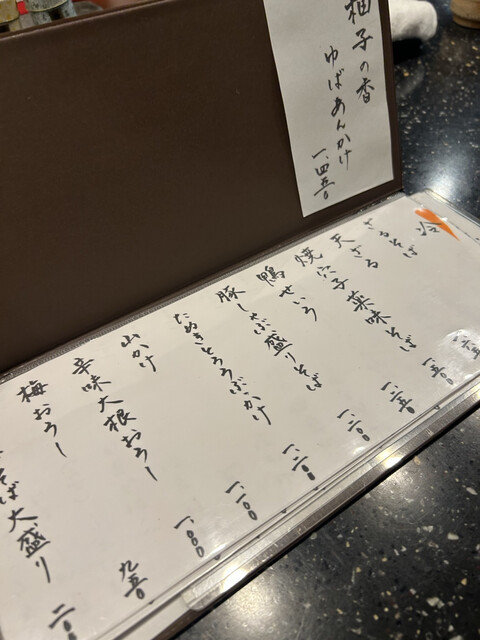 柚子の香
ゆばあんかけ
一、四五〇
冷
ざるそば
天ざる
焼穴子薬味そば
鴨せいろ
豚しゃぶ盛りそば
たぬきとろろぶっかけ
山かけ
辛味大根おろし
梅おろし
そば大盛り
一、二〇〇
一、一〇〇
一、〇〇〇
九五〇
二〇〇